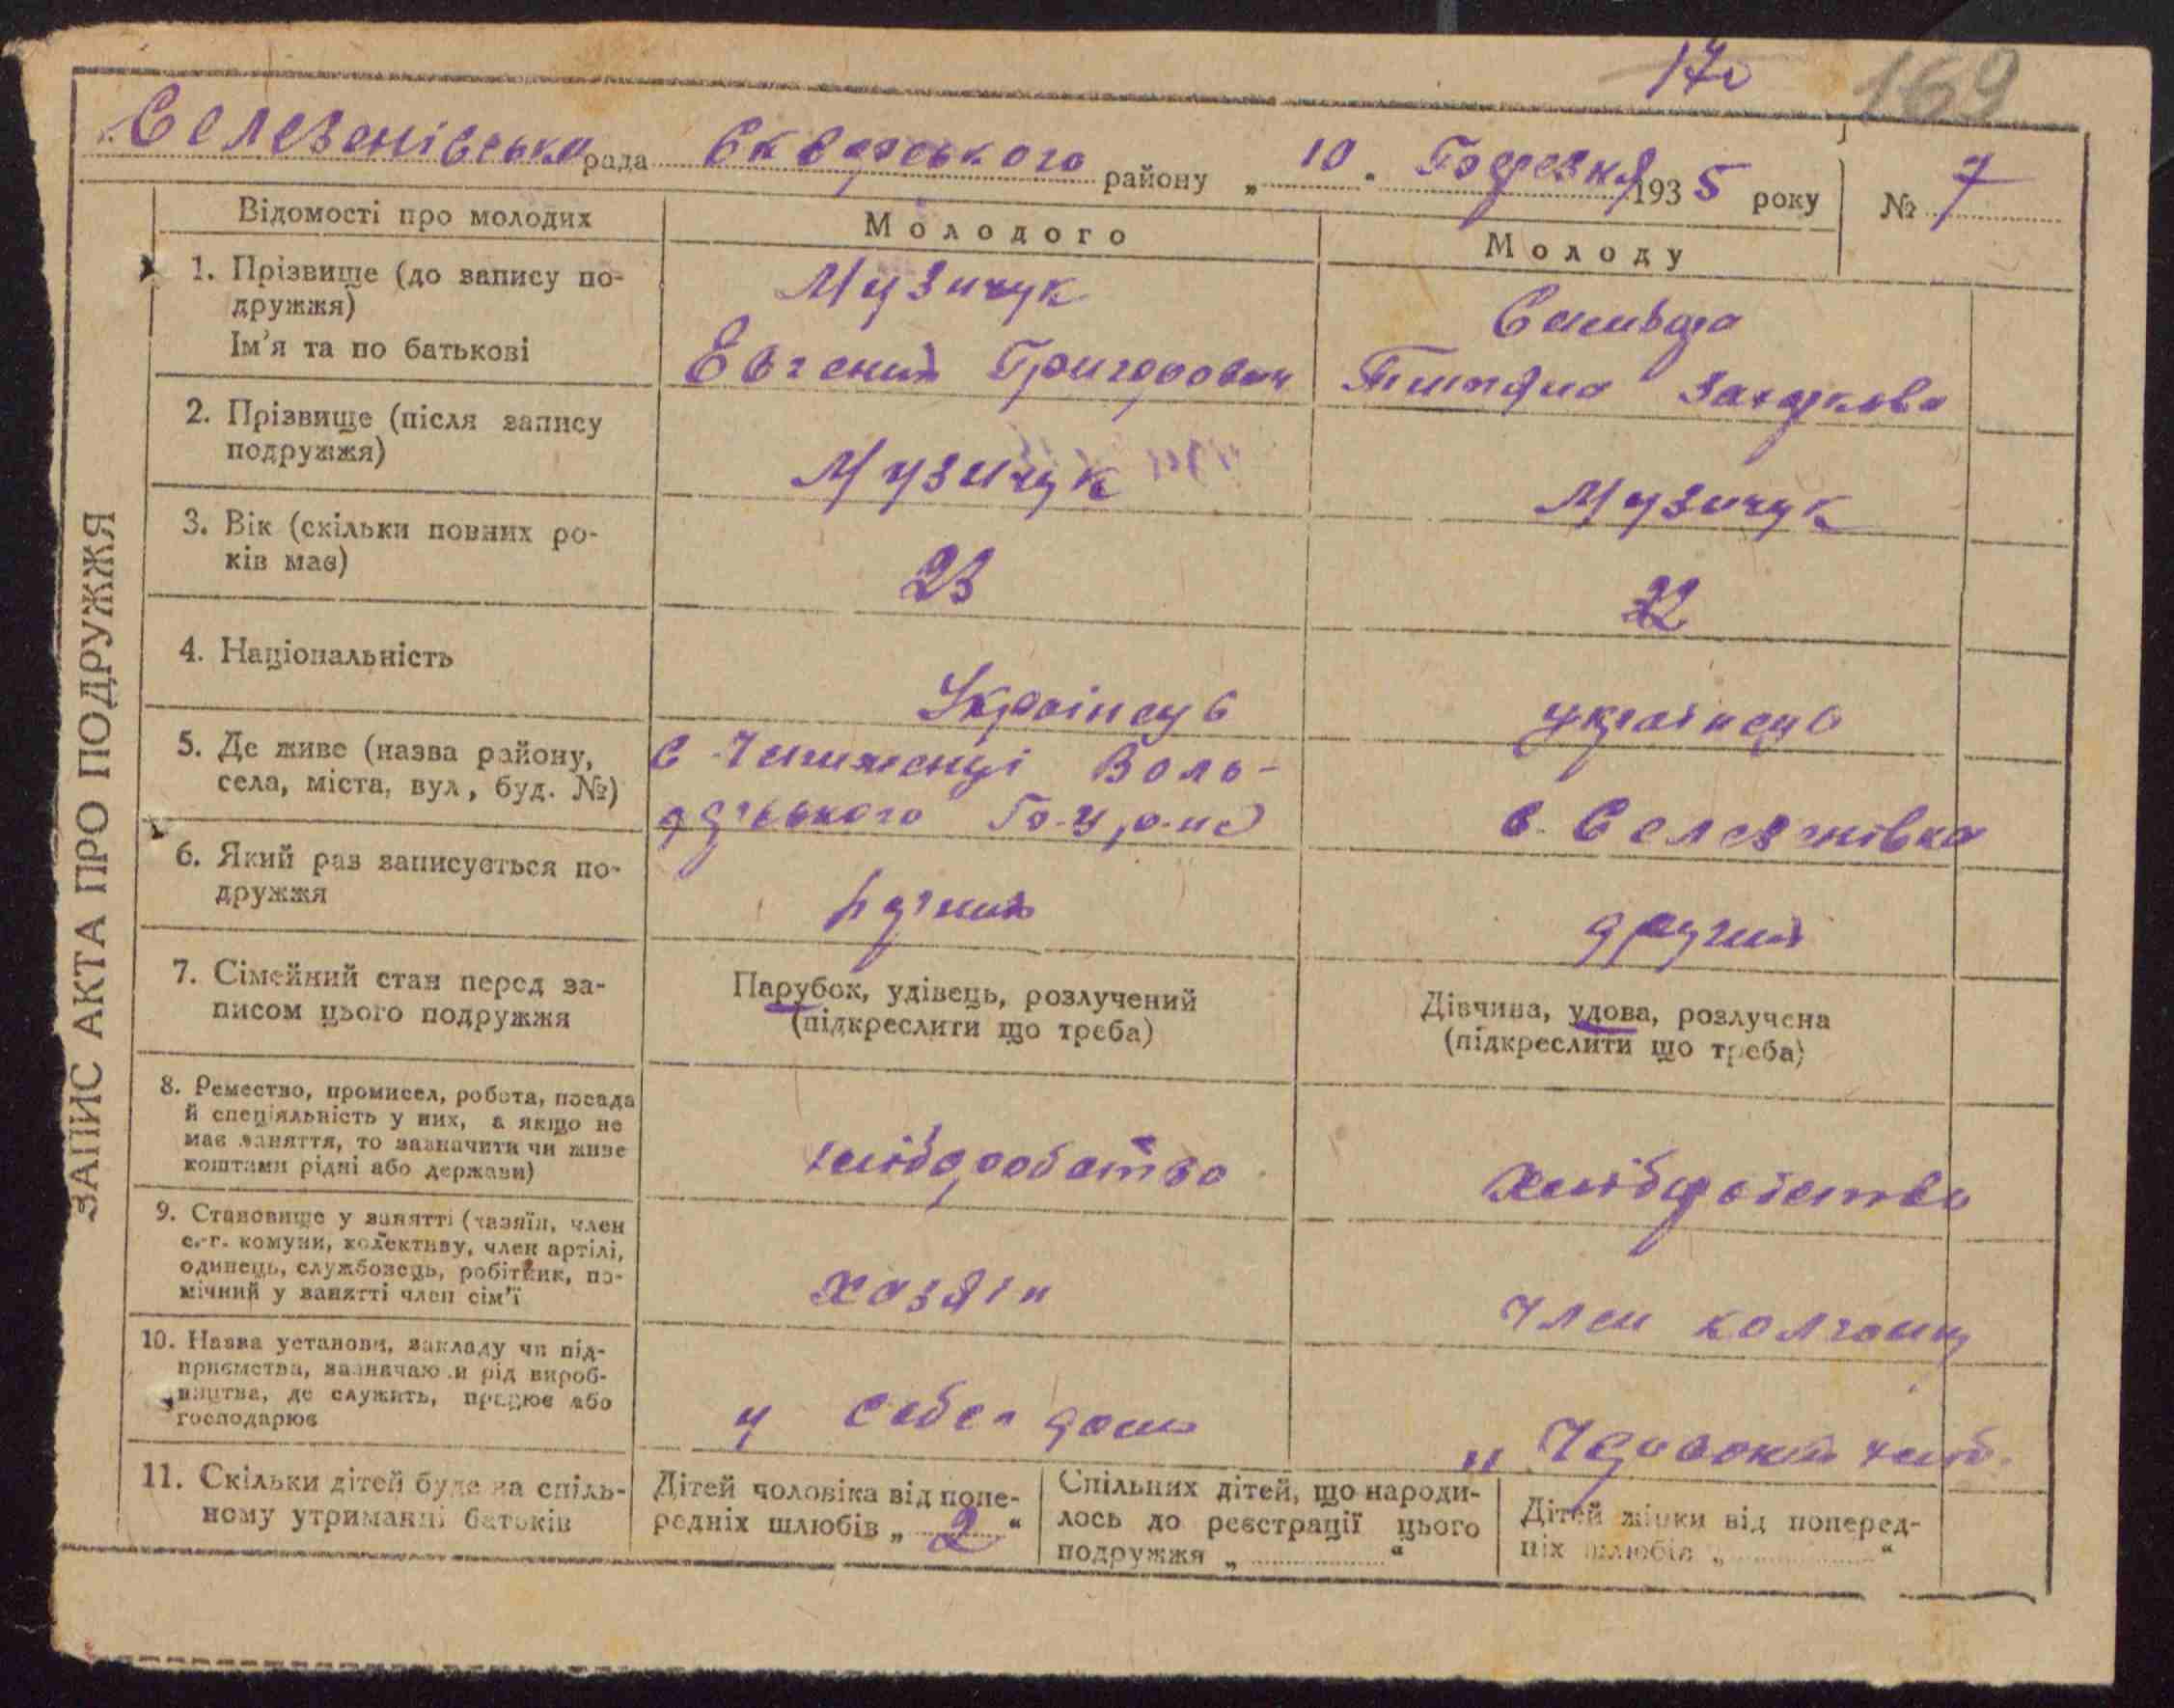 170 169
Селезенівська рада Сквирського району „ 10 " Березня 1935 року № 7
Відомості про молодих
Молодого
Молоду
1. Прізвище (до запису по-
дружжя)
Ім'я та по батькові
Музичук
Евгений Григорович
Титяна Захаркова
2. Прізвище (після запису
подружжя)
Музичук
Музичук
3. Вік (скільки повних ро-
ків має)
23
32
4. Національність
Украінец
украінец
5. Де живе (назва району,
села, міста, вул, буд. №)
с. Воло-
дарського
с. Селезенівка
6. Який раз записується по-
дружжя
другий
7. Сімейний стан перед за-
писом цього подружжя
Парубок, удівець, розлучений
(підкреслити що треба)
Дівчина, удова, розлучена
(підкреслити що треба)
8. Ремество, промисел, робота, посада
й спеціяльність у них, а якщо не
має заняття, то зазначити чи живе
коштами рідні або держави)
хліборобство
хліборобство
9. Становище у занятті (хазяїн, член
с.-г. комуни, колективу, член артілі,
одинець, службовець, робітник, по-
мічний у занятті член сім'ї
хазяін
член колгоспу
10. Назва установи, закладу чи під-
приємства, зазначаючи рід вироб-
ництва, де служить, працює або
господарює
у себе дома
„ Червоний хліб.
11. Скільки дітей буде на спіль-
ному утриманні батьків
Дітей чоловіка від попе-
редніх шлюбів „ 2 "
Спільних дітей, що народи-
лось до реєстрації цього
подружжя „ "
Дітей жінки від поперед-
ніх шлюбів „ "
ЗАПИС АКТА ПРО ПОДРУЖЖЯ